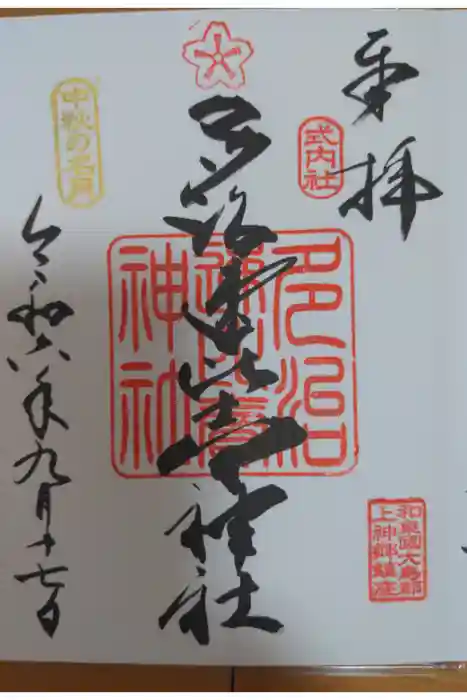 奉拝
式内社
和泉國大鳥郡
上神郷鎮座
多治速比賣神社
多治
速比賣
神社
中秋の名月
令和六年九月十七日